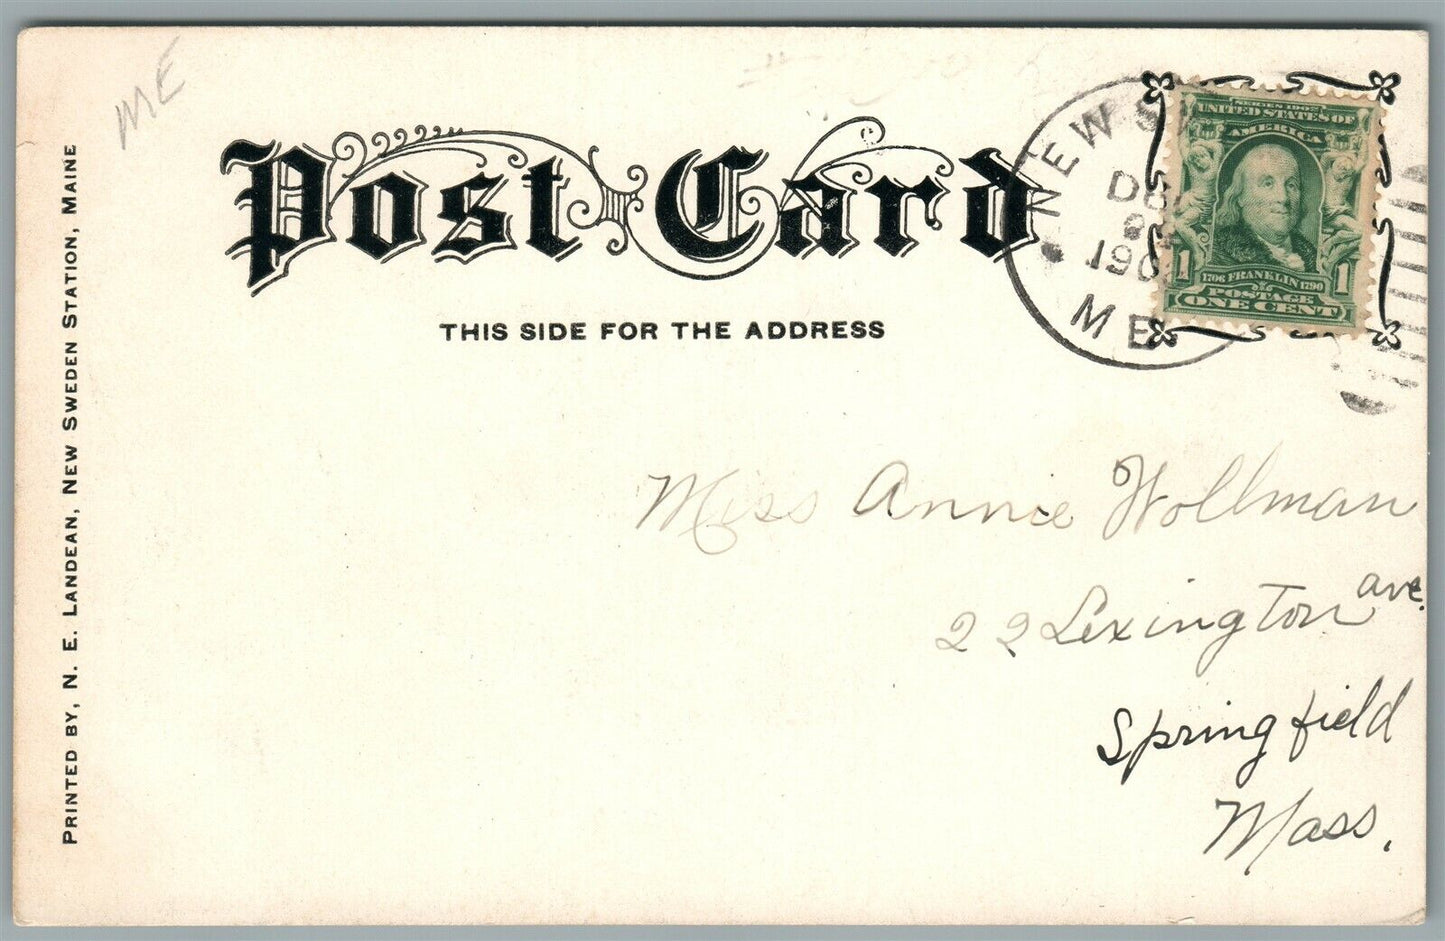 ME
Post Card
THIS SIDE FOR THE ADDRESS
PRINTED BY, N. E. LANDEAN, NEW SWEDEN STATION, MAINE
NEW
ME
SERIES 1902
UNITED STATES OF
AMERICA
1 1
1706 FRANKLIN 1790
POSTAGE
ONE CENT
Miss Annie Wollman
22 Lexington ave.
Springfield
Mass.